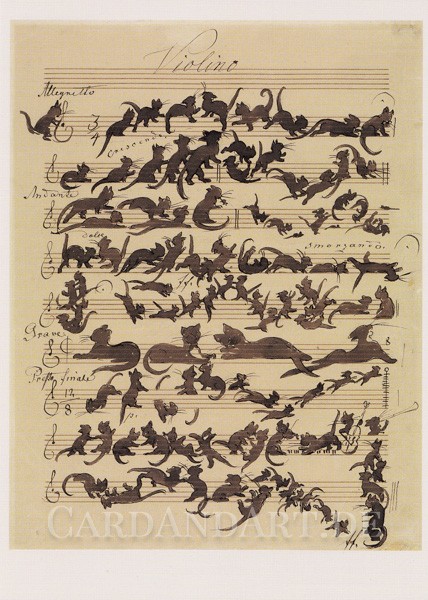 Violino
Allegretto
3
4
Crescendo
Andante
dolce
Smorzando.
ff.
Grave
8
Presto finale
12
8
p:
ff.
CARDANDART.DE